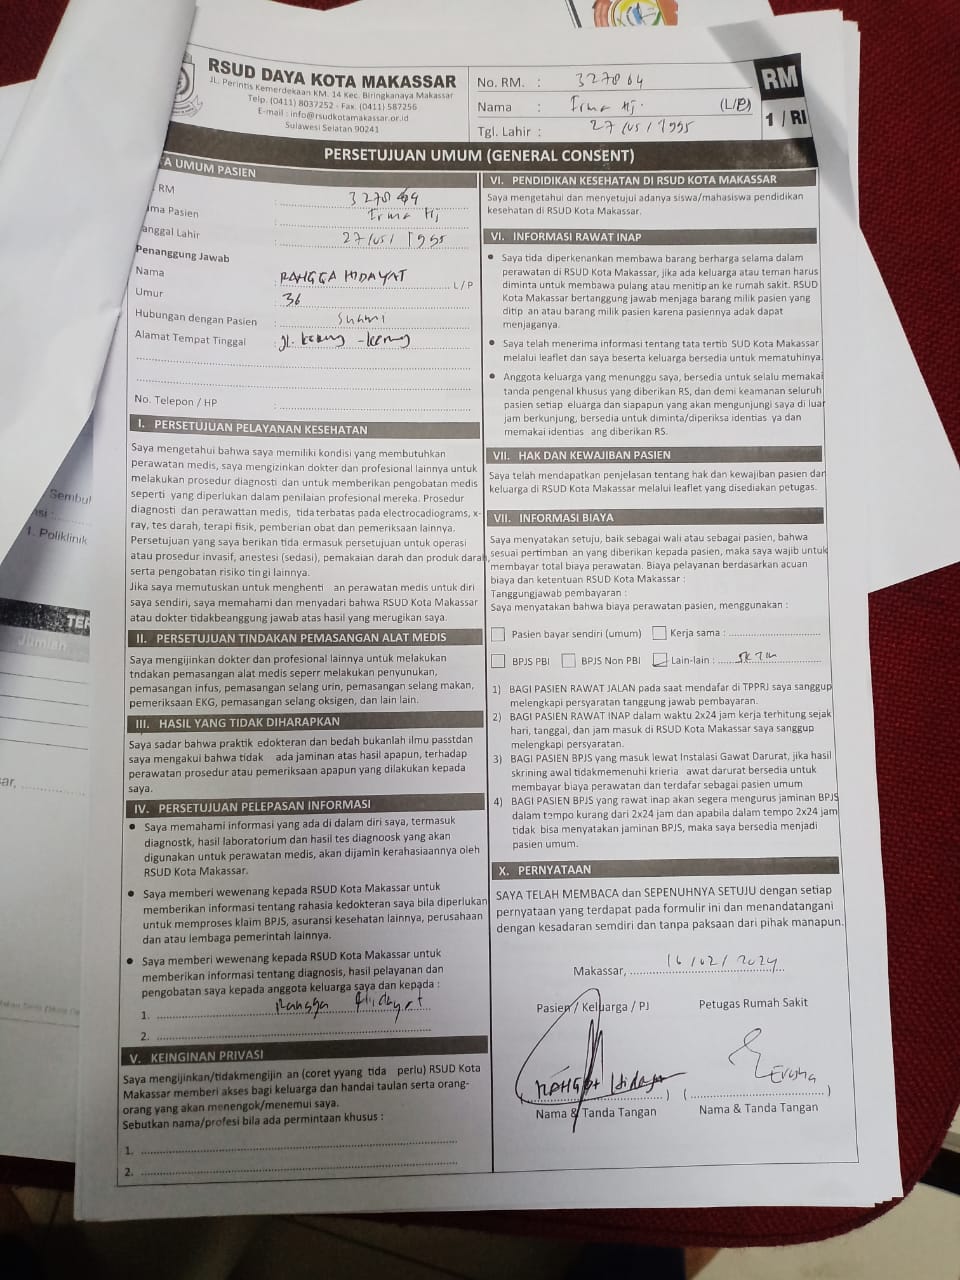 RSUD DAYA KOTA MAKASSAR
JL. Perintis Kemerdekaan KM. 14 Kec. Biringkanaya Makassar
Telp. (0411) 8037252 - Fax. (0411) 587256
E-mail : info@rsudkotamakassar.or.id
Sulawesi Selatan 90241
No. RM. : 327864
Nama : Irma Hj. (L/P)
Tgl. Lahir : 27/05/1995
RM
1 / RI
PERSETUJUAN UMUM (GENERAL CONSENT)
A UMUM PASIEN
RM : 327864
ma Pasien : Irma Hj
anggal Lahir : 27/05/1995
Penanggung Jawab
Nama : RANGGA HIDAYAT L/P
Umur : 36
Hubungan dengan Pasien : Suami
Alamat Tempat Tinggal : Jl.
No. Telepon / HP :
I. PERSETUJUAN PELAYANAN KESEHATAN
Saya mengetahui bahwa saya memiliki kondisi yang membutuhkan
perawatan medis, saya mengizinkan dokter dan profesional lainnya untuk
melakukan prosedur diagnosti dan untuk memberikan pengobatan medis
seperti yang diperlukan dalam penilaian profesional mereka. Prosedur
diagnosti dan perawattan medis, tida terbatas pada electrocadiograms, x-
ray, tes darah, terapi fisik, pemberian obat dan pemeriksaan lainnya.
Persetujuan yang saya berikan tida ermasuk persetujuan untuk operasi
atau prosedur invasif, anestesi (sedasi), pemakaian darah dan produk darah,
serta pengobatan risiko tin gi lainnya.
Jika saya memutuskan untuk menghenti an perawatan medis untuk diri
saya sendiri, saya memahami dan menyadari bahwa RSUD Kota Makassar
atau dokter tidakbeanggung jawab atas hasil yang merugikan saya.
II. PERSETUJUAN TINDAKAN PEMASANGAN ALAT MEDIS
Saya mengijinkan dokter dan profesional lainnya untuk melakukan
tndakan pemasangan alat medis seperr melakukan penyunukan,
pemasangan infus, pemasangan selang urin, pemasangan selang makan,
pemeriksaan EKG, pemasangan selang oksigen, dan lain lain.
III. HASIL YANG TIDAK DIHARAPKAN
Saya sadar bahwa praktik edokteran dan bedah bukanlah ilmu passtdan
saya mengakui bahwa tidak ada jaminan atas hasil apapun, terhadap
perawatan prosedur atau pemeriksaan apapun yang dilakukan kepada
saya.
IV. PERSETUJUAN PELEPASAN INFORMASI
• Saya memahami informasi yang ada di dalam diri saya, termasuk
diagnostk, hasil laboratorium dan hasil tes diagnoosk yang akan
digunakan untuk perawatan medis, akan dijamin kerahasiaannya oleh
RSUD Kota Makassar.
• Saya memberi wewenang kepada RSUD Kota Makassar untuk
memberikan informasi tentang rahasia kedokteran saya bila diperlukan
untuk memproses klaim BPJS, asuransi kesehatan lainnya, perusahaan
dan atau lembaga pemerintah lainnya.
• Saya memberi wewenang kepada RSUD Kota Makassar untuk
memberikan informasi tentang diagnosis, hasil pelayanan dan
pengobatan saya kepada anggota keluarga saya dan kepada :
1. Rangga Hidayat
2.
V. KEINGINAN PRIVASI
Saya mengijinkan/tidakmengijin an (coret yyang tida perlu) RSUD Kota
Makassar memberi akses bagi keluarga dan handai taulan serta orang-
orang yang akan menengok/menemui saya.
Sebutkan nama/profesi bila ada permintaan khusus :
1.
2.
VI. PENDIDIKAN KESEHATAN DI RSUD KOTA MAKASSAR
Saya mengetahui dan menyetujui adanya siswa/mahasiswa pendidikan
kesehatan di RSUD Kota Makassar.
VI. INFORMASI RAWAT INAP
• Saya tida diperkenankan membawa barang berharga selama dalam
perawatan di RSUD Kota Makassar, jika ada keluarga atau teman harus
diminta untuk membawa pulang atau menitipan ke rumah sakit. RSUD
Kota Makassar bertanggung jawab menjaga barang milik pasien yang
ditip an atau barang milik pasien karena pasiennya adak dapat
menjaganya.
• Saya telah menerima informasi tentang tata tertib SUD Kota Makassar
melalui leaflet dan saya beserta keluarga bersedia untuk mematuhinya.
• Anggota keluarga yang menunggu saya, bersedia untuk selalu memakai
tanda pengenal khusus yang diberikan RS, dan demi keamanan seluruh
pasien setiap eluarga dan siapapun yang akan mengunjungi saya di luar
jam berkunjung, bersedia untuk diminta/diperiksa identias ya dan
memakai identias ang diberikan RS.
VII. HAK DAN KEWAJIBAN PASIEN
Saya telah mendapatkan penjelasan tentang hak dan kewajiban pasien dar
keluarga di RSUD Kota Makassar melalui leaflet yang disediakan petugas.
VII. INFORMASI BIAYA
Saya menyatakan setuju, baik sebagai wali atau sebagai pasien, bahwa
sesuai pertimban an yang diberikan kepada pasien, maka saya wajib untuk
membayar total biaya perawatan. Biaya pelayanan berdasarkan acuan
biaya dan ketentuan RSUD Kota Makassar :
Tanggungjawab pembayaran :
Saya menyatakan bahwa biaya perawatan pasien, menggunakan :
Pasien bayar sendiri (umum) Kerja sama :
BPJS PBI BPJS Non PBI Lain-lain : SKTM
1) BAGI PASIEN RAWAT JALAN pada saat mendafar di TPPRJ saya sanggup
melengkapi persyaratan tanggung jawab pembayaran.
2) BAGI PASIEN RAWAT INAP dalam waktu 2x24 jam kerja terhitung sejak
hari, tanggal, dan jam masuk di RSUD Kota Makassar saya sanggup
melengkapi persyaratan.
3) BAGI PASIEN BPJS yang masuk lewat Instalasi Gawat Darurat, jika hasil
skrining awal tidakmemenuhi krieria awat darurat bersedia untuk
membayar biaya perawatan dan terdafar sebagai pasien umum
4) BAGI PASIEN BPJS yang rawat inap akan segera mengurus jaminan BPJS
dalam tempo kurang dari 2x24 jam dan apabila dalam tempo 2x24 jam
tidak bisa menyatakan jaminan BPJS, maka saya bersedia menjadi
pasien umum.
X. PERNYATAAN
SAYA TELAH MEMBACA dan SEPENUHNYA SETUJU dengan setiap
pernyataan yang terdapat pada formulir ini dan menandatangani
dengan kesadaran semdiri dan tanpa paksaan dari pihak manapun.
Makassar, 16/02/2024
Pasien / Keluarga / PJ Petugas Rumah Sakit
RANGGA Hidayat
Nama & Tanda Tangan Nama & Tanda Tangan
Sembul
1. Poliklinik
TER
Jumlah